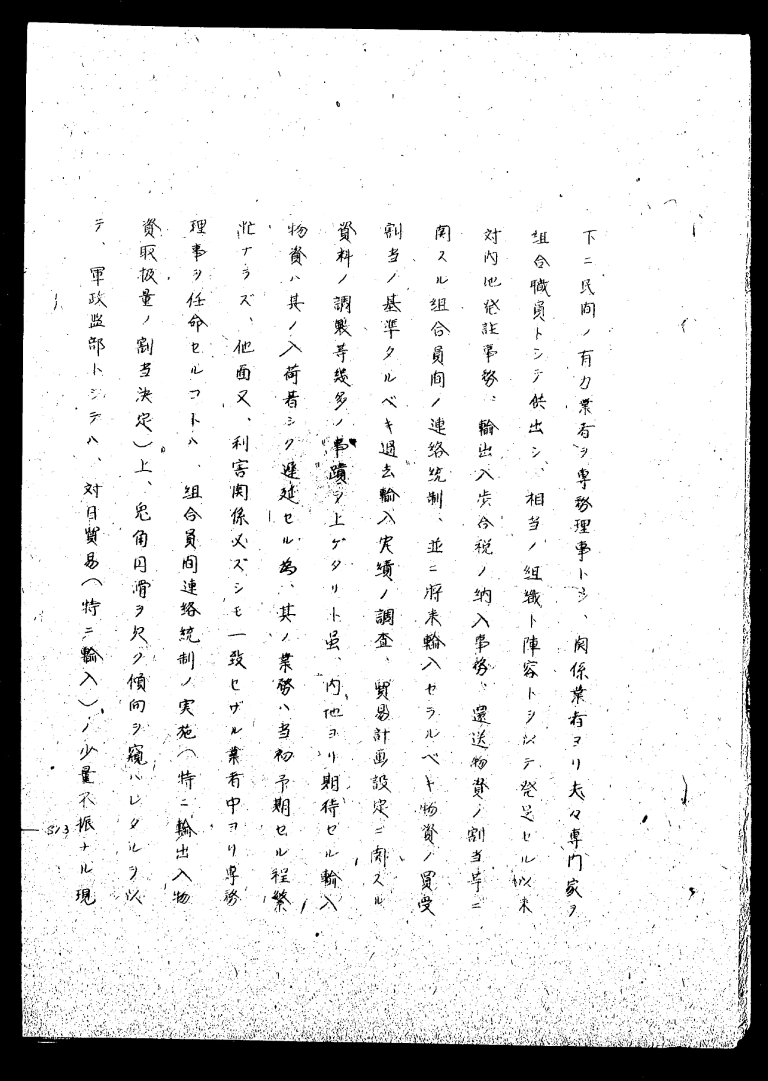 下ニ民間ノ有力業者ヲ専務理事トシ、関係業者ヨリ夫々専門家ヲ
組合職員トシテ供出シ、相当ノ組織ト陣容トヲ以テ発足セル以来
対内地発註事務、輸出入歩合税ノ納入事務、還送物資ノ割当等ニ
関スル組合員間ノ連絡統制、並ニ将来輸入セラルベキ物資ノ買受
割当ノ基準タルベキ過去輸入実績ノ調査、貿易計画設定ニ関スル
資料ノ調製等幾多ノ事蹟ヲ上ゲタリト虽、内地ヨリ期待セル輸入
物資ハ其ノ入荷著シク遅延セル為、其ノ業務ハ当初予期セル程繁
忙ナラズ、他面又、利害関係必ズシモ一致セザル業者中ヨリ専務
理事ヲ任命セルコトハ、組合員間連絡統制ノ実施（特ニ輸出入物
資取扱量ノ割当決定）上、兎角円滑ヲ欠ク傾向ヲ窺ハレタルヲ以
テ、軍政監部トシテハ、対日貿易（特ニ輸入）ノ少量不振ナル現
313